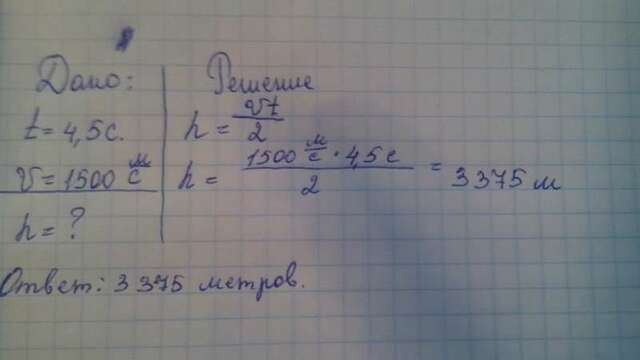 Дано:
t = 4,5 с.
v = 1500 м/с
h = ?
Решение
h = vt/2
h = 1500 м/с · 4,5 с / 2 = 3375 м
Ответ: 3375 метров.